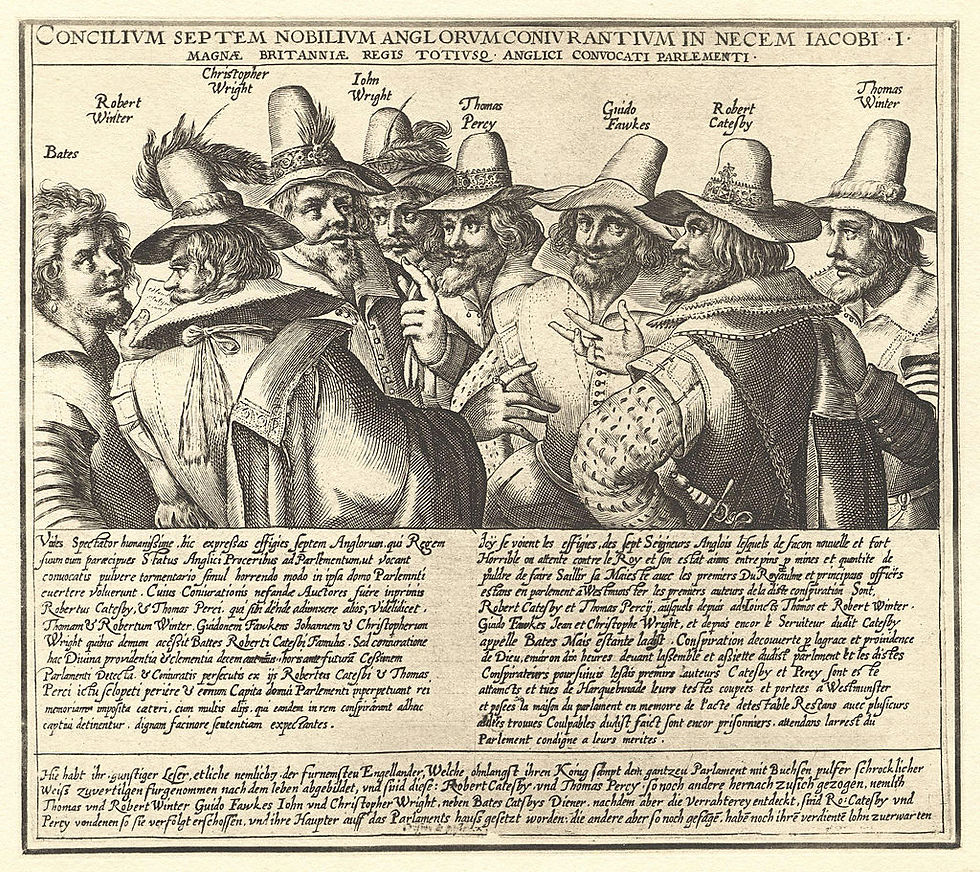 CONCILIVM SEPTEM NOBILIVM ANGLORVM CONIVRANTIVM IN NECEM IACOBI · I ·
MAGNÆ BRITANNIÆ REGIS TOTIVSQ · ANGLICI CONVOCATI PARLEMENTI ·
Bates
Robert
Winter
Christopher
Wright
Iohn
Wright
Thomas
Percy
Guido
Fawkes
Robert
Catesby
Thomas
Winter
Vides Spectator humanissime, hic expressas effigies septem Anglorum qui Regem
suum cum præcipuis Status Anglici Proceribus ad Parlementum, ut vocant
convocatis pulvere tormentario simul horrendo modo in ipsa domo Parlemnti
evertere voluerunt. Cuius Coniurationis nefandæ Auctores fuere inprimis
Robertus Catesby, & Thomas Perci, qui sibi dehde adiunxere alios, videlidicet
Thomam & Robertum Winter, Guidonem Fawkens Iohannem & Christopherum
Wright quibus demum accessit Baites Roberti Catesbi Famulus. Sed coniuratione
hac Divina providentia & clementia decem horis ante futuræ Cessinem
Parlamenti Detecta, & Coniuratis persecutis ex ijs Robertus Catesbi & Thomas
Perci ictu sclopeti periere & eorum Capita domui Parlementi inperpetuam rei
memoriam imposita cæteri, cum multis alijs, qui eandem in rem conspirarant adhuc
captivi detinentur, dignam facinore sententiam expectantes.
Icÿ se voient les effigies, des sept Seigneurs Anglois lesquels de facon nouvelle et fort
Horrible on attente contre le Roy et son estat aians entrepris p mines et quantite de
puldre de faire Saillir sa Maieste avec les premiers Du Royaulme et principaus officirs
estans en parlement a Westmunster les premiers auteurs de la diste conspiration Sont,
Robert Catesby et Thomas Percij, ausquels depuis adioincts Thomas et Robert Winter.
Guido Fawkes Jean et Christophe Wright, et depuis encor le Serviteur dudit Catesby
appelle Bates Mais estante ladist. Conspiration decouverte p la grace et providence
de Dieu, environ dix heures devant lassemble et assiette dudist parlement et les distes
Conspirateurs poursuivis lesdis premirs auteurs Catesby et Percy sont este
attaincts et tues de Harquebusade leurs testes coupees et portees a Westmunster
et posees la maison du parlament en memoire de l'acte detestable Restans avec plusieurs
aultres trouves Coulpables dudist faict sont encor prisonniers, attendans larrest du
Parlement condigne a leurs merites.
Hie habt ihr, gunstiger Leser, etliche nemlich 7 der furnemsten Engellander, Welche ohnlangst ihren König sampt dem gantzen Parlament mit Buchsen pulfer schrocklicher
Weiß zuvertilgen furgenommen nach dem leben abgebildet, vnd sind diese: Robert Catesby, vnd Thomas Percy: so noch andere hernach zu sich gezogen, nemlih
Thomas vnd Robert Winter Guido Fawkes Iohn vnd Christopher Wright, neben Bates Catsbys Diener. nachdem aber die Verrahterey entdeckt, sind Ro: Catesby vnd
Percy von denen so sie verfolgt erschossen, vnd ihre Haupter auff das Parlaments hauß gesetzt worden: die andere aber so noch gefägē, habē noch ihrē verdientē lohn zu erwarten